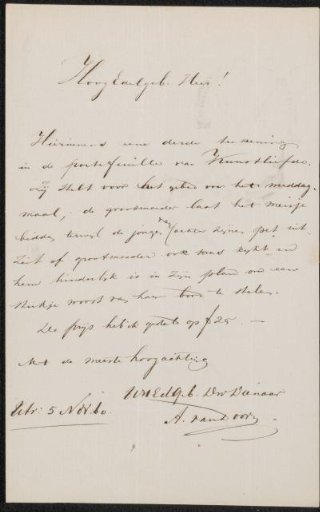 HoogEdelgeb. Heer!
Hiernevens eene derde teekening
in de portefeuille van Kunstliefde.
zij stelt voor het gebed voor het middag-
maal, de grootmoeder laat het meisje
bidden terwijl de jongen achter zijne pet uit
ziet of grootmoeder ook soms kijkt en
hem hinderlijk is in zijn plan om een
stukje worst van haar bord te stelen.
De prijs heb ik gesteld op ƒ25. —
Met de meeste hoogachting
UwEdGeb. Dw Dienaar
Utr. 5 Nov 60.
A. van Door